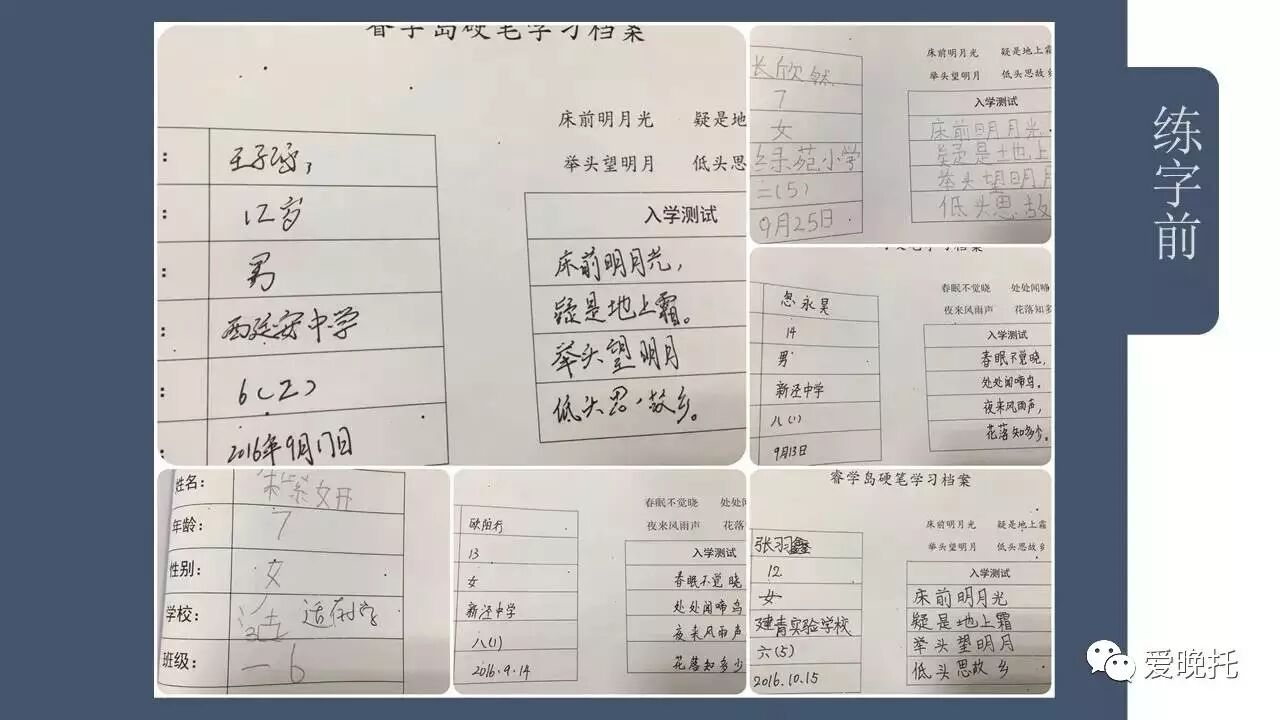 睿学岛硬笔学习档案
床前明月光 疑是地
举头望明月 低头思
12岁
男
西延安中学
6(2)
2016年9月17日
入学测试
床前明月光,
疑是地上霜。
举头望明月
低头思故乡。
欣然
7
女
绿苑小学
二(5)
9月25日
床前明月光 疑是地上霜
举头望明月 低头思故乡
入学测试
床前明月光
疑是地上
举头望明月
低头思故
永昊
14
男
新泾中学
八(1)
9月13日
春眠不觉晓 处处闻啼
夜来风雨声 花落知多
入学测试
春眠不觉晓,
处处闻啼鸟。
夜来风雨声,
花落知多少。
姓名:
年龄: 7
性别: 女
学校:
班级: 一6
欧阳
13
女
新泾中学
八(1)
2016.9.14
春眠不觉晓 处处闻
夜来风雨声 花落
入学测试
春眠不觉晓
处处闻啼鸟
夜来风雨声
花落知多少
睿学岛硬笔学习档案
张羽鑫
12
女
建青实验学校
六(5)
2016.10.15
床前明月光 疑是地上霜
举头望明月 低头思故乡
入学测试
床前明月光
疑是地上霜
举头望明月
低头思故乡
练字前
爱晚托